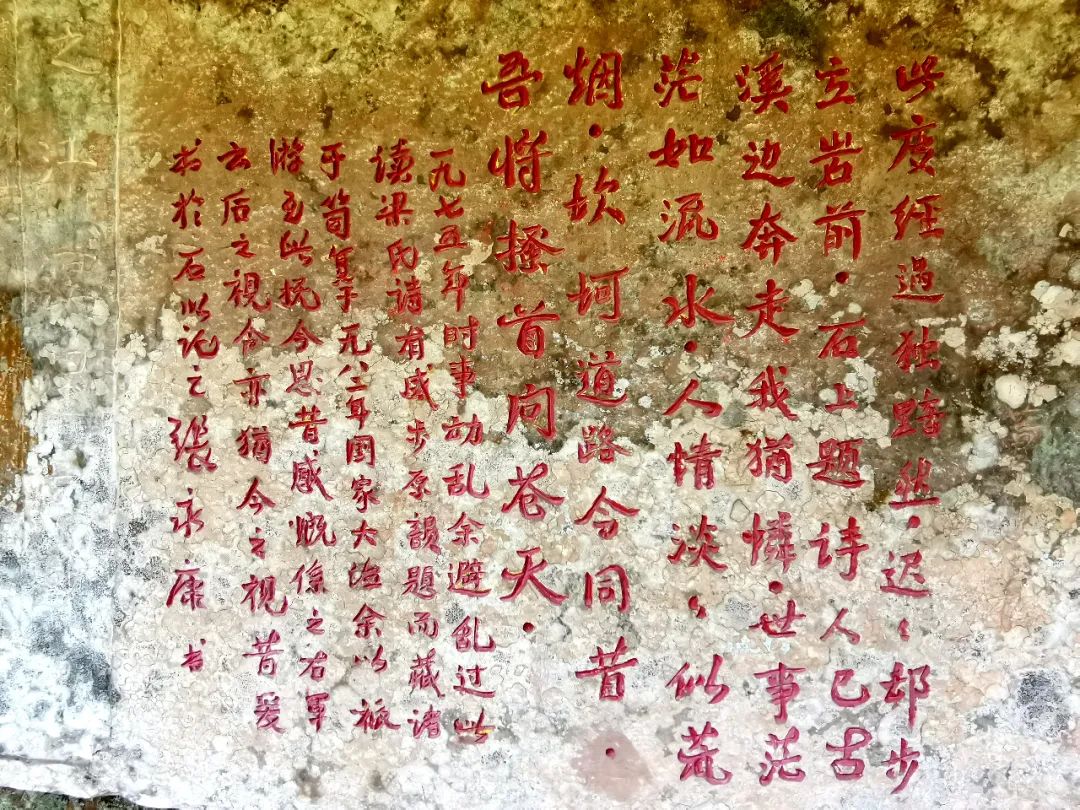 此度经過独黯然．迟々却步
立岩前．石上题诗人已古
溪边奔走我猶憐．世事茫
茫如流水．人情淡々似荒
烟．坎坷道路今同昔．
吾将搔首问苍天．
一九七五年时事动乱余避乱过此
读梁氏诗有感步原韻题而藏诸
于笥 一九八二年國家大治余以
游至此抚今思昔感慨係之右軍
云后之視今亦猶今之視昔爰
书於石以记之 張永康 书
之江